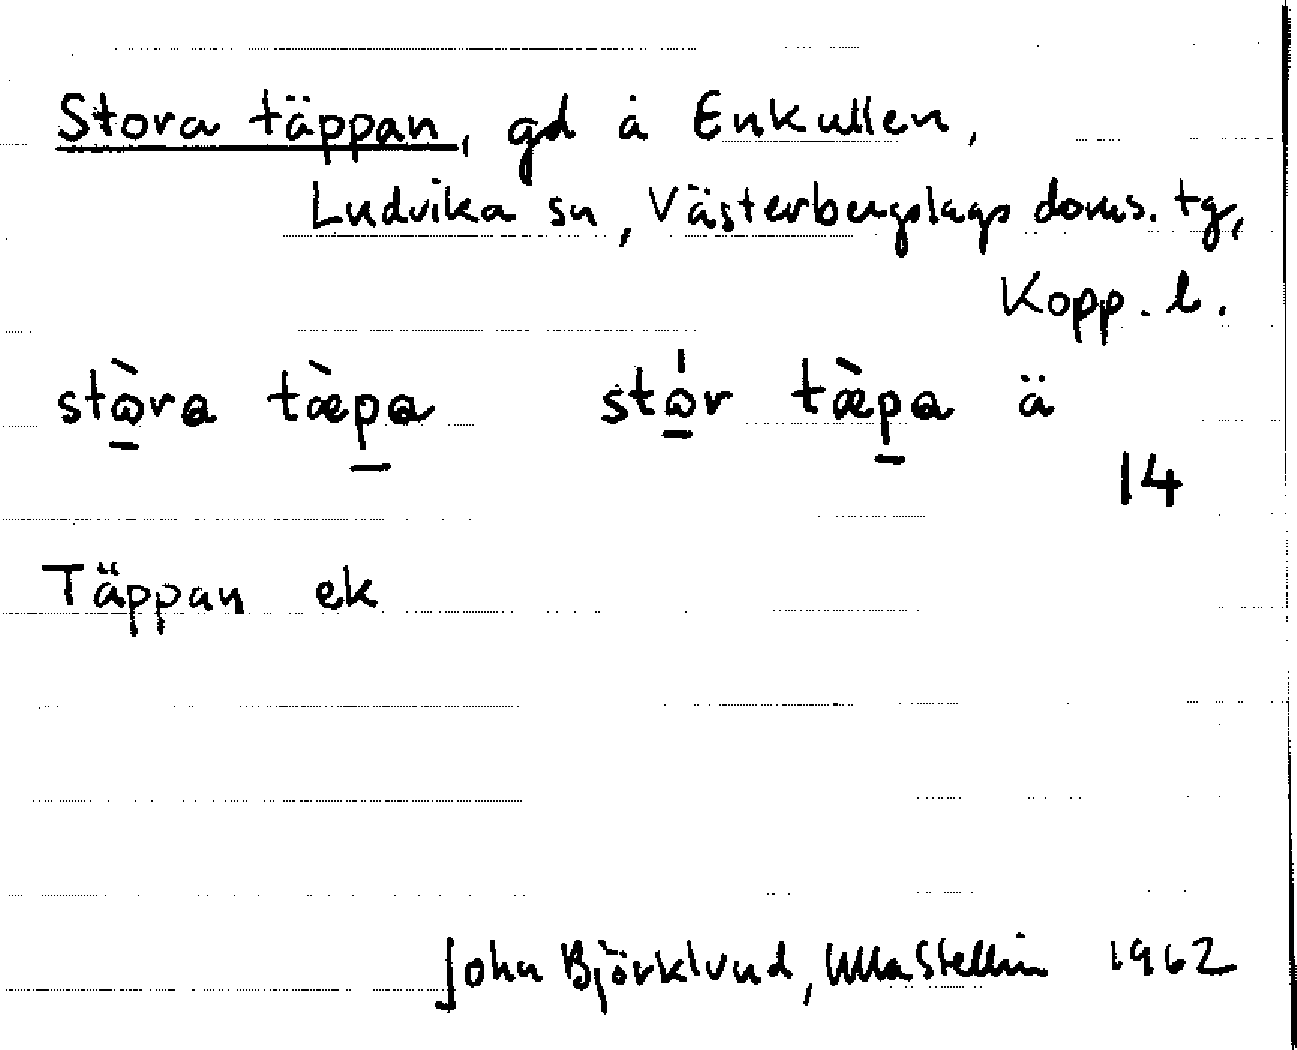 Stora täppan, gd å Enkullen,
Ludvika sn, Västerbergslags doms. tg,
Kopp. l.
stòra tæ̀pa stór tæ̀pa ä
14
Täppan ek
John Björklund, Ulla Stellin 1962